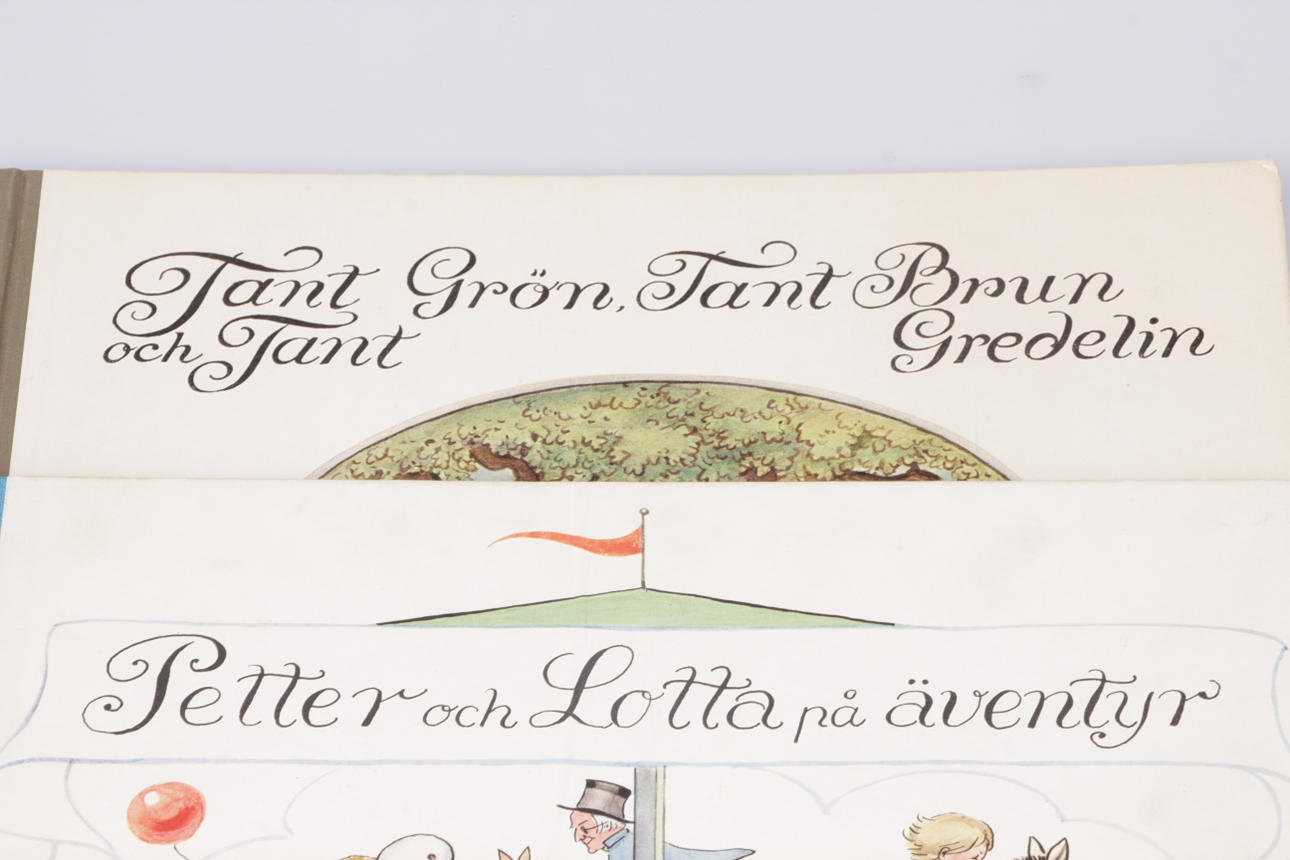 Tant Grön, Tant Brun
och Tant Gredelin
Petter och Lotta på äventyr